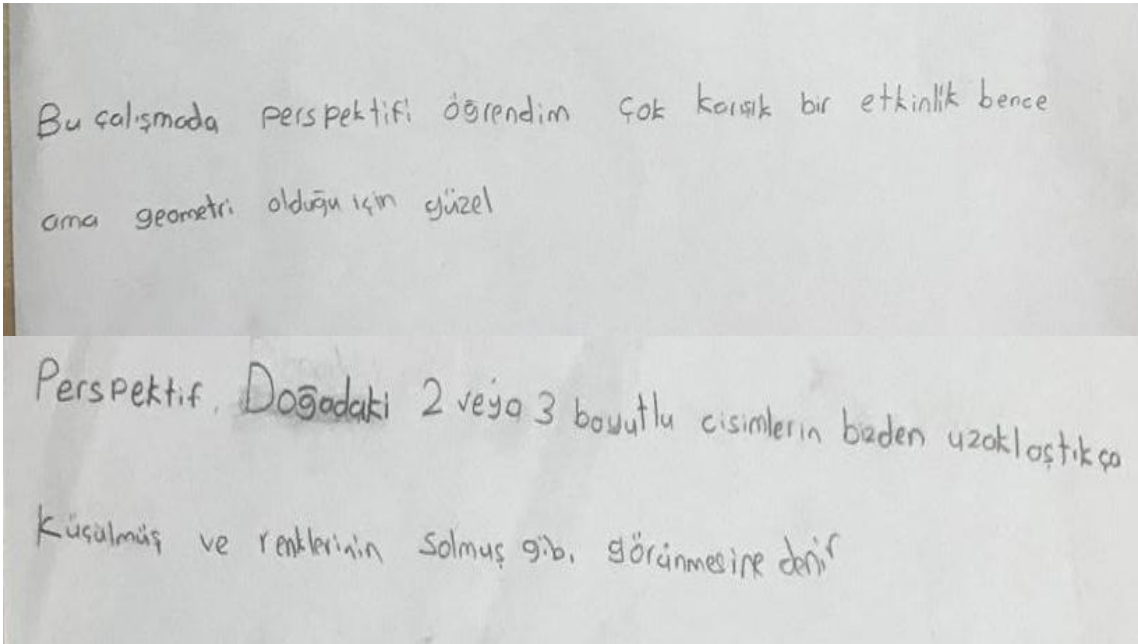 Bu çalışmada perspektifi öğrendim çok karışık bir etkinlik bence
ama geometri olduğu için güzel
Perspektif, Doğadaki 2 veya 3 boyutlu cisimlerin bizden uzaklaştıkça
küçülmüş ve renklerinin solmuş gibi görünmesine denir